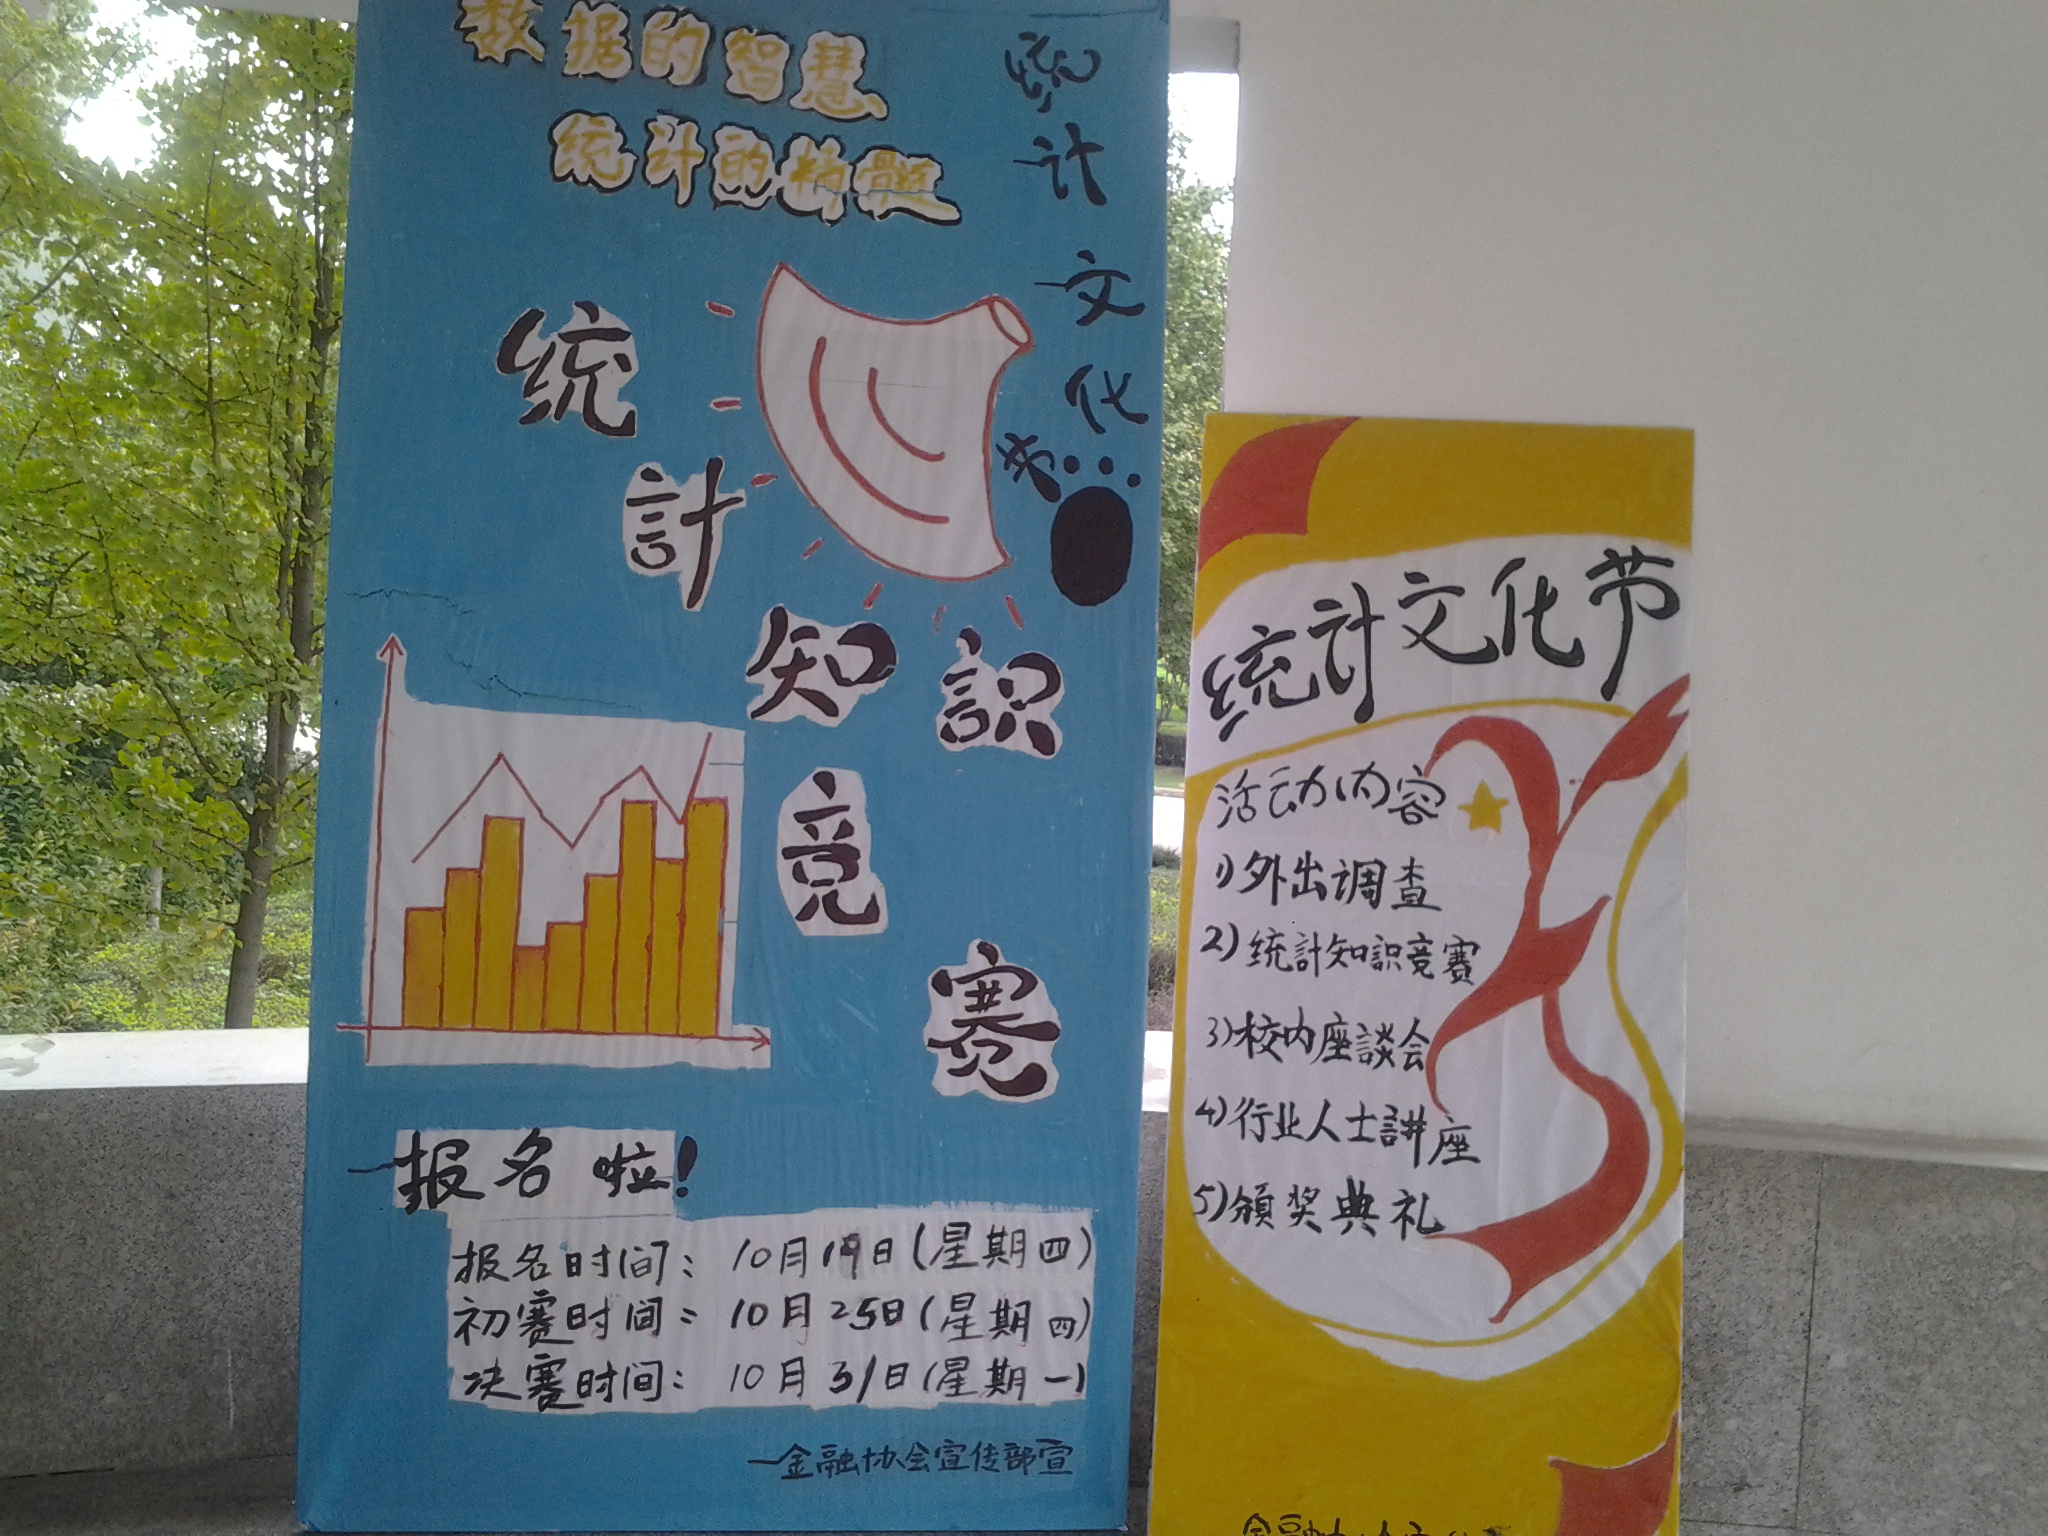 数据的智慧
统计的精髓
统计文化节
统計知識竞赛
报名啦!
报名时间: 10月19日(星期四)
初赛时间: 10月25日(星期四)
决赛时间: 10月31日(星期一)
—金融协会宣传部宣
统计文化节
活动内容
1)外出调查
2)统計知識竞赛
3)校内座談会
4)行业人士講座
5)頒奖典礼
金融